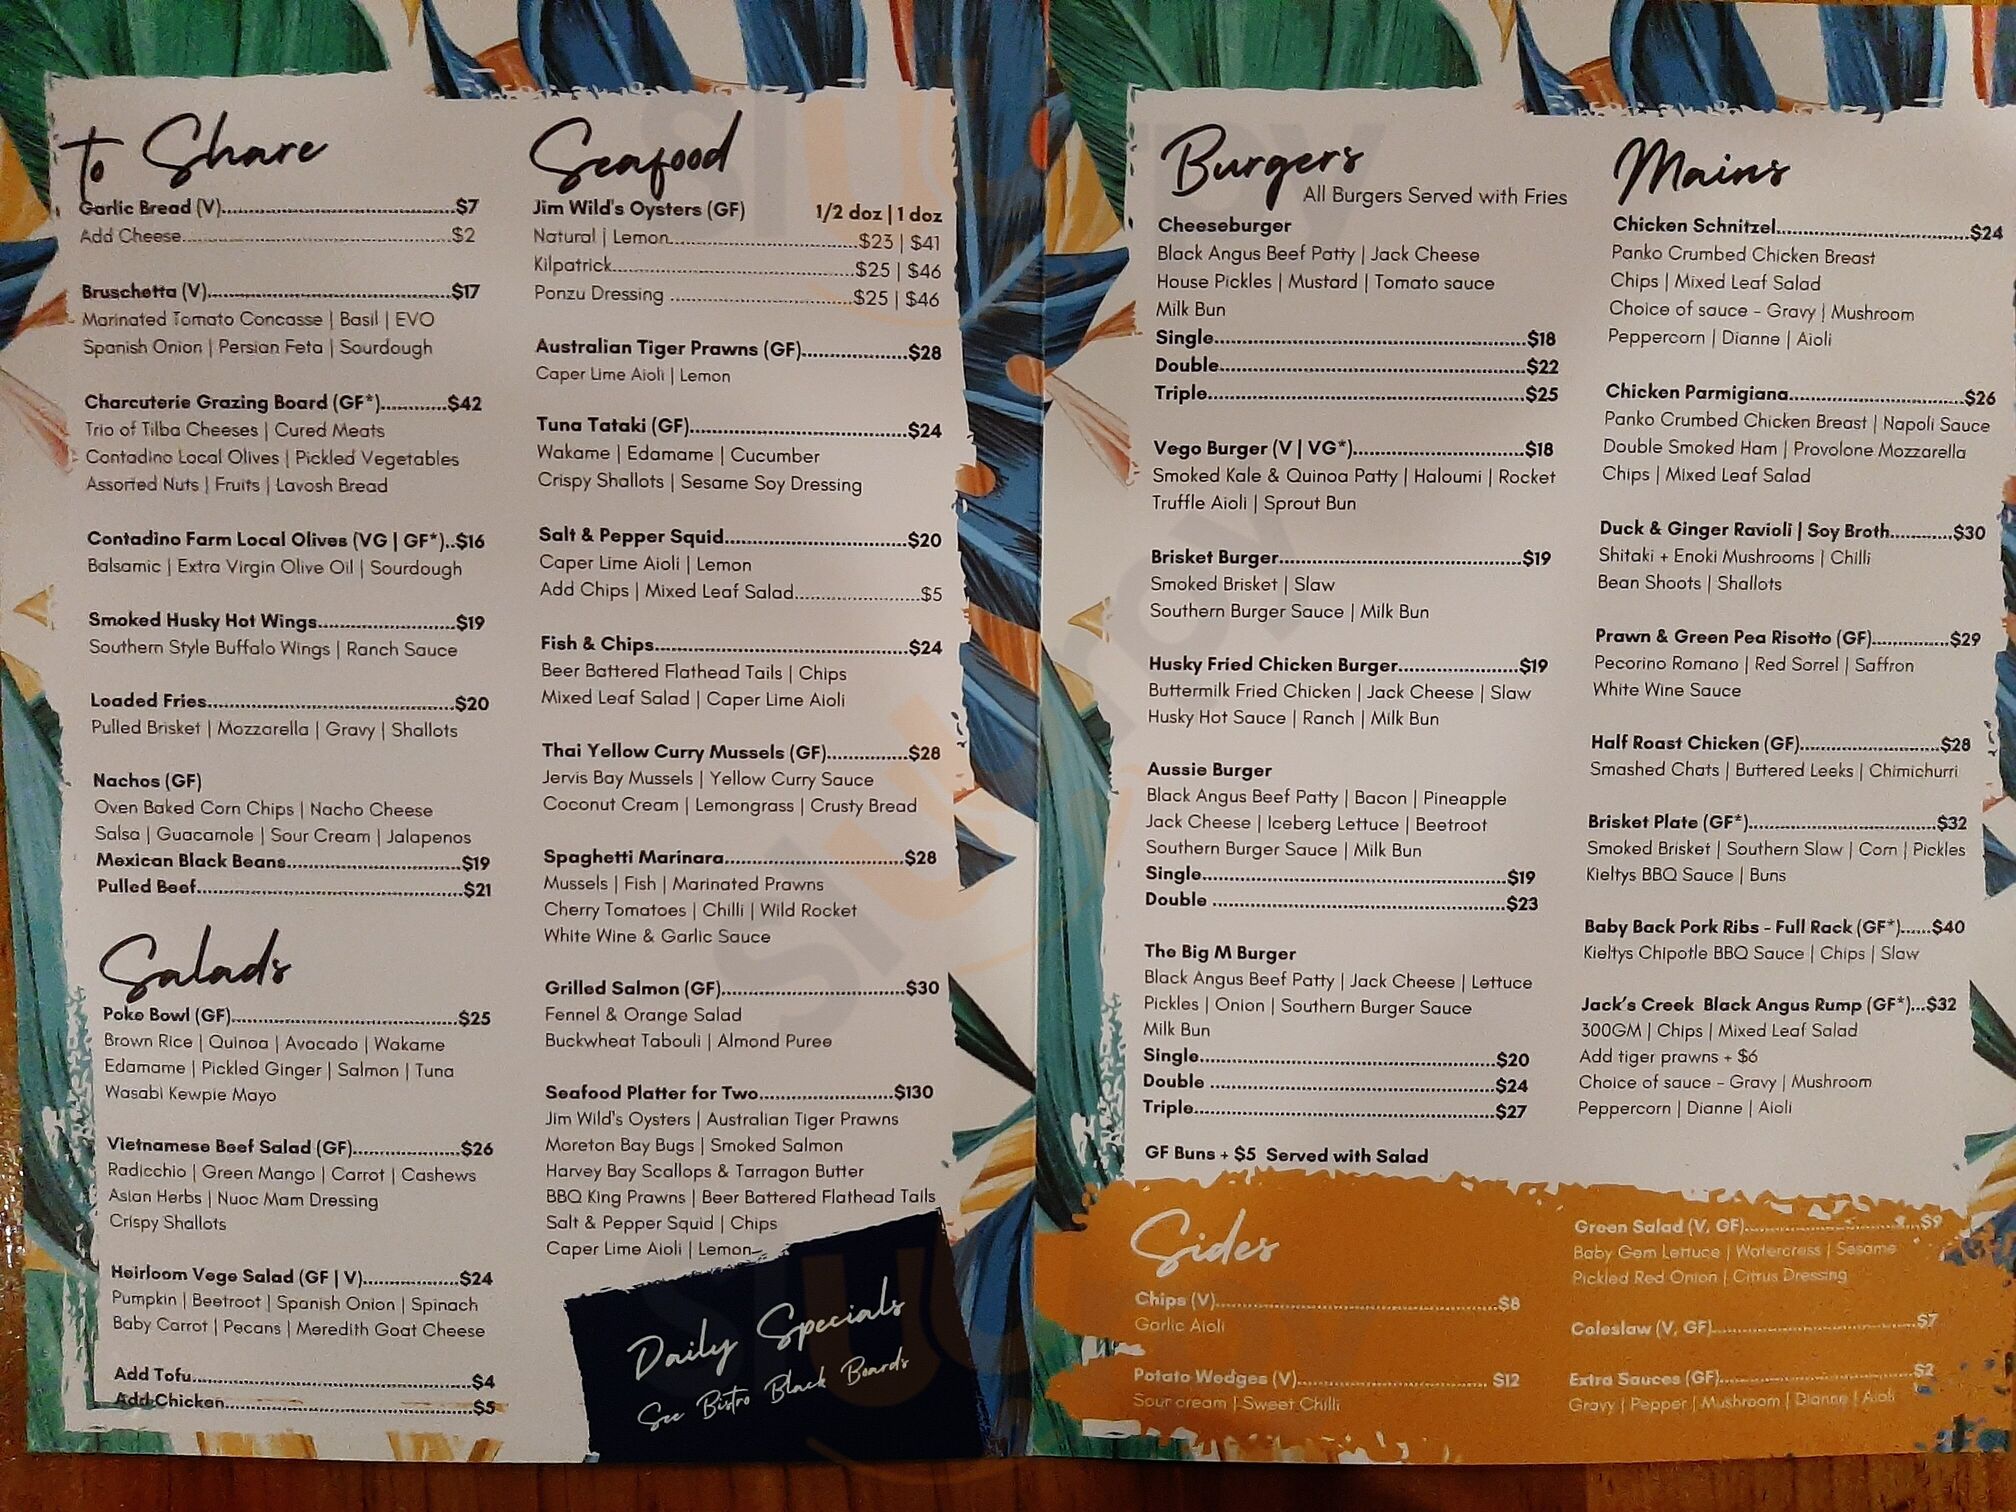 To Share
Garlic Bread (V)....$7
Add Cheese....$2
Bruschetta (V)....$17
Marinated Tomato Concasse | Basil | EVO
Spanish Onion | Persian Feta | Sourdough
Charcuterie Grazing Board (GF*)....$42
Trio of Tilba Cheeses | Cured Meats
Contadino Local Olives | Pickled Vegetables
Assorted Nuts | Fruits | Lavosh Bread
Contadino Farm Local Olives (VG | GF*)..$16
Balsamic | Extra Virgin Olive Oil | Sourdough
Smoked Husky Hot Wings....$19
Southern Style Buffalo Wings | Ranch Sauce
Loaded Fries....$20
Pulled Brisket | Mozzarella | Gravy | Shallots
Nachos (GF)
Oven Baked Corn Chips | Nacho Cheese
Salsa | Guacamole | Sour Cream | Jalapenos
Mexican Black Beans....$19
Pulled Beef....$21
Salads
Poke Bowl (GF)....$25
Brown Rice | Quinoa | Avocado | Wakame
Edamame | Pickled Ginger | Salmon | Tuna
Wasabi Kewpie Mayo
Vietnamese Beef Salad (GF)....$26
Radicchio | Green Mango | Carrot | Cashews
Asian Herbs | Nuoc Mam Dressing
Crispy Shallots
Heirloom Vege Salad (GF | V)....$24
Pumpkin | Beetroot | Spanish Onion | Spinach
Baby Carrot | Pecans | Meredith Goat Cheese
Add Tofu....$4
Add Chicken....$5
Seafood
Jim Wild's Oysters (GF) 1/2 doz | 1 doz
Natural | Lemon....$23 | $41
Kilpatrick....$25 | $46
Ponzu Dressing ....$25 | $46
Australian Tiger Prawns (GF)....$28
Caper Lime Aioli | Lemon
Tuna Tataki (GF)....$24
Wakame | Edamame | Cucumber
Crispy Shallots | Sesame Soy Dressing
Salt & Pepper Squid....$20
Caper Lime Aioli | Lemon
Add Chips | Mixed Leaf Salad....$5
Fish & Chips....$24
Beer Battered Flathead Tails | Chips
Mixed Leaf Salad | Caper Lime Aioli
Thai Yellow Curry Mussels (GF)....$28
Jervis Bay Mussels | Yellow Curry Sauce
Coconut Cream | Lemongrass | Crusty Bread
Spaghetti Marinara....$28
Mussels | Fish | Marinated Prawns
Cherry Tomatoes | Chilli | Wild Rocket
White Wine & Garlic Sauce
Grilled Salmon (GF)....$30
Fennel & Orange Salad
Buckwheat Tabouli | Almond Puree
Seafood Platter for Two....$130
Jim Wild's Oysters | Australian Tiger Prawns
Moreton Bay Bugs | Smoked Salmon
Harvey Bay Scallops & Tarragon Butter
BBQ King Prawns | Beer Battered Flathead Tails
Salt & Pepper Squid | Chips
Caper Lime Aioli | Lemon
Daily Specials
See Bistro Black Boards
Burgers
All Burgers Served with Fries
Cheeseburger
Black Angus Beef Patty | Jack Cheese
House Pickles | Mustard | Tomato sauce
Milk Bun
Single....$18
Double....$22
Triple....$25
Vego Burger (V | VG*)....$18
Smoked Kale & Quinoa Patty | Haloumi | Rocket
Truffle Aioli | Sprout Bun
Brisket Burger....$19
Smoked Brisket | Slaw
Southern Burger Sauce | Milk Bun
Husky Fried Chicken Burger....$19
Buttermilk Fried Chicken | Jack Cheese | Slaw
Husky Hot Sauce | Ranch | Milk Bun
Aussie Burger
Black Angus Beef Patty | Bacon | Pineapple
Jack Cheese | Iceberg Lettuce | Beetroot
Southern Burger Sauce | Milk Bun
Single....$19
Double ....$23
The Big M Burger
Black Angus Beef Patty | Jack Cheese | Lettuce
Pickles | Onion | Southern Burger Sauce
Milk Bun
Single....$20
Double ....$24
Triple....$27
GF Buns + $5 Served with Salad
Mains
Chicken Schnitzel....$24
Panko Crumbed Chicken Breast
Chips | Mixed Leaf Salad
Choice of sauce - Gravy | Mushroom
Peppercorn | Dianne | Aioli
Chicken Parmigiana....$26
Panko Crumbed Chicken Breast | Napoli Sauce
Double Smoked Ham | Provolone Mozzarella
Chips | Mixed Leaf Salad
Duck & Ginger Ravioli | Soy Broth....$30
Shitaki + Enoki Mushrooms | Chilli
Bean Shoots | Shallots
Prawn & Green Pea Risotto (GF)....$29
Pecorino Romano | Red Sorrel | Saffron
White Wine Sauce
Half Roast Chicken (GF)....$28
Smashed Chats | Buttered Leeks | Chimichurri
Brisket Plate (GF*)....$32
Smoked Brisket | Southern Slaw | Corn | Pickles
Kieltys BBQ Sauce | Buns
Baby Back Pork Ribs - Full Rack (GF*)....$40
Kieltys Chipotle BBQ Sauce | Chips | Slaw
Jack's Creek Black Angus Rump (GF*)...$32
300GM | Chips | Mixed Leaf Salad
Add tiger prawns + $6
Choice of sauce - Gravy | Mushroom
Peppercorn | Dianne | Aioli
Sides
Chips (V)....$8
Garlic Aioli
Potato Wedges (V)....$12
Sour cream | Sweet Chilli
Green Salad (V, GF)....$9
Baby Gem Lettuce | Watercress | Sesame
Pickled Red Onion | Citrus Dressing
Coleslaw (V, GF)....$7
Extra Sauces (GF)....$2
Gravy | Pepper | Mushroom | Dianne | Aioli